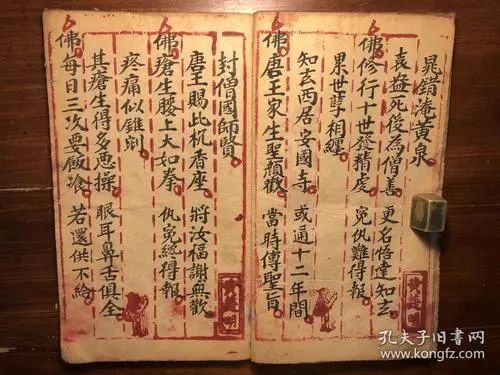 晁錯淹黃泉
袁盎死後為僧善 更名悟達知玄
佛修行十世發精虔 寃仇難得報
累世孽相纏
知玄西居安國寺 或通十二年間
佛唐王家生聖顏歡 當時傳聖旨
封僧國師賢
唐王賜此杌香座 將汝福謝與歡
佛瘡生腰上大如拳 仇寃總得報
疼痛似錐剜
其瘡生得多惡操 眼耳鼻舌俱全
佛每日三次要飯飡 若還供不給
孔夫子旧书网
www.kongfz.com